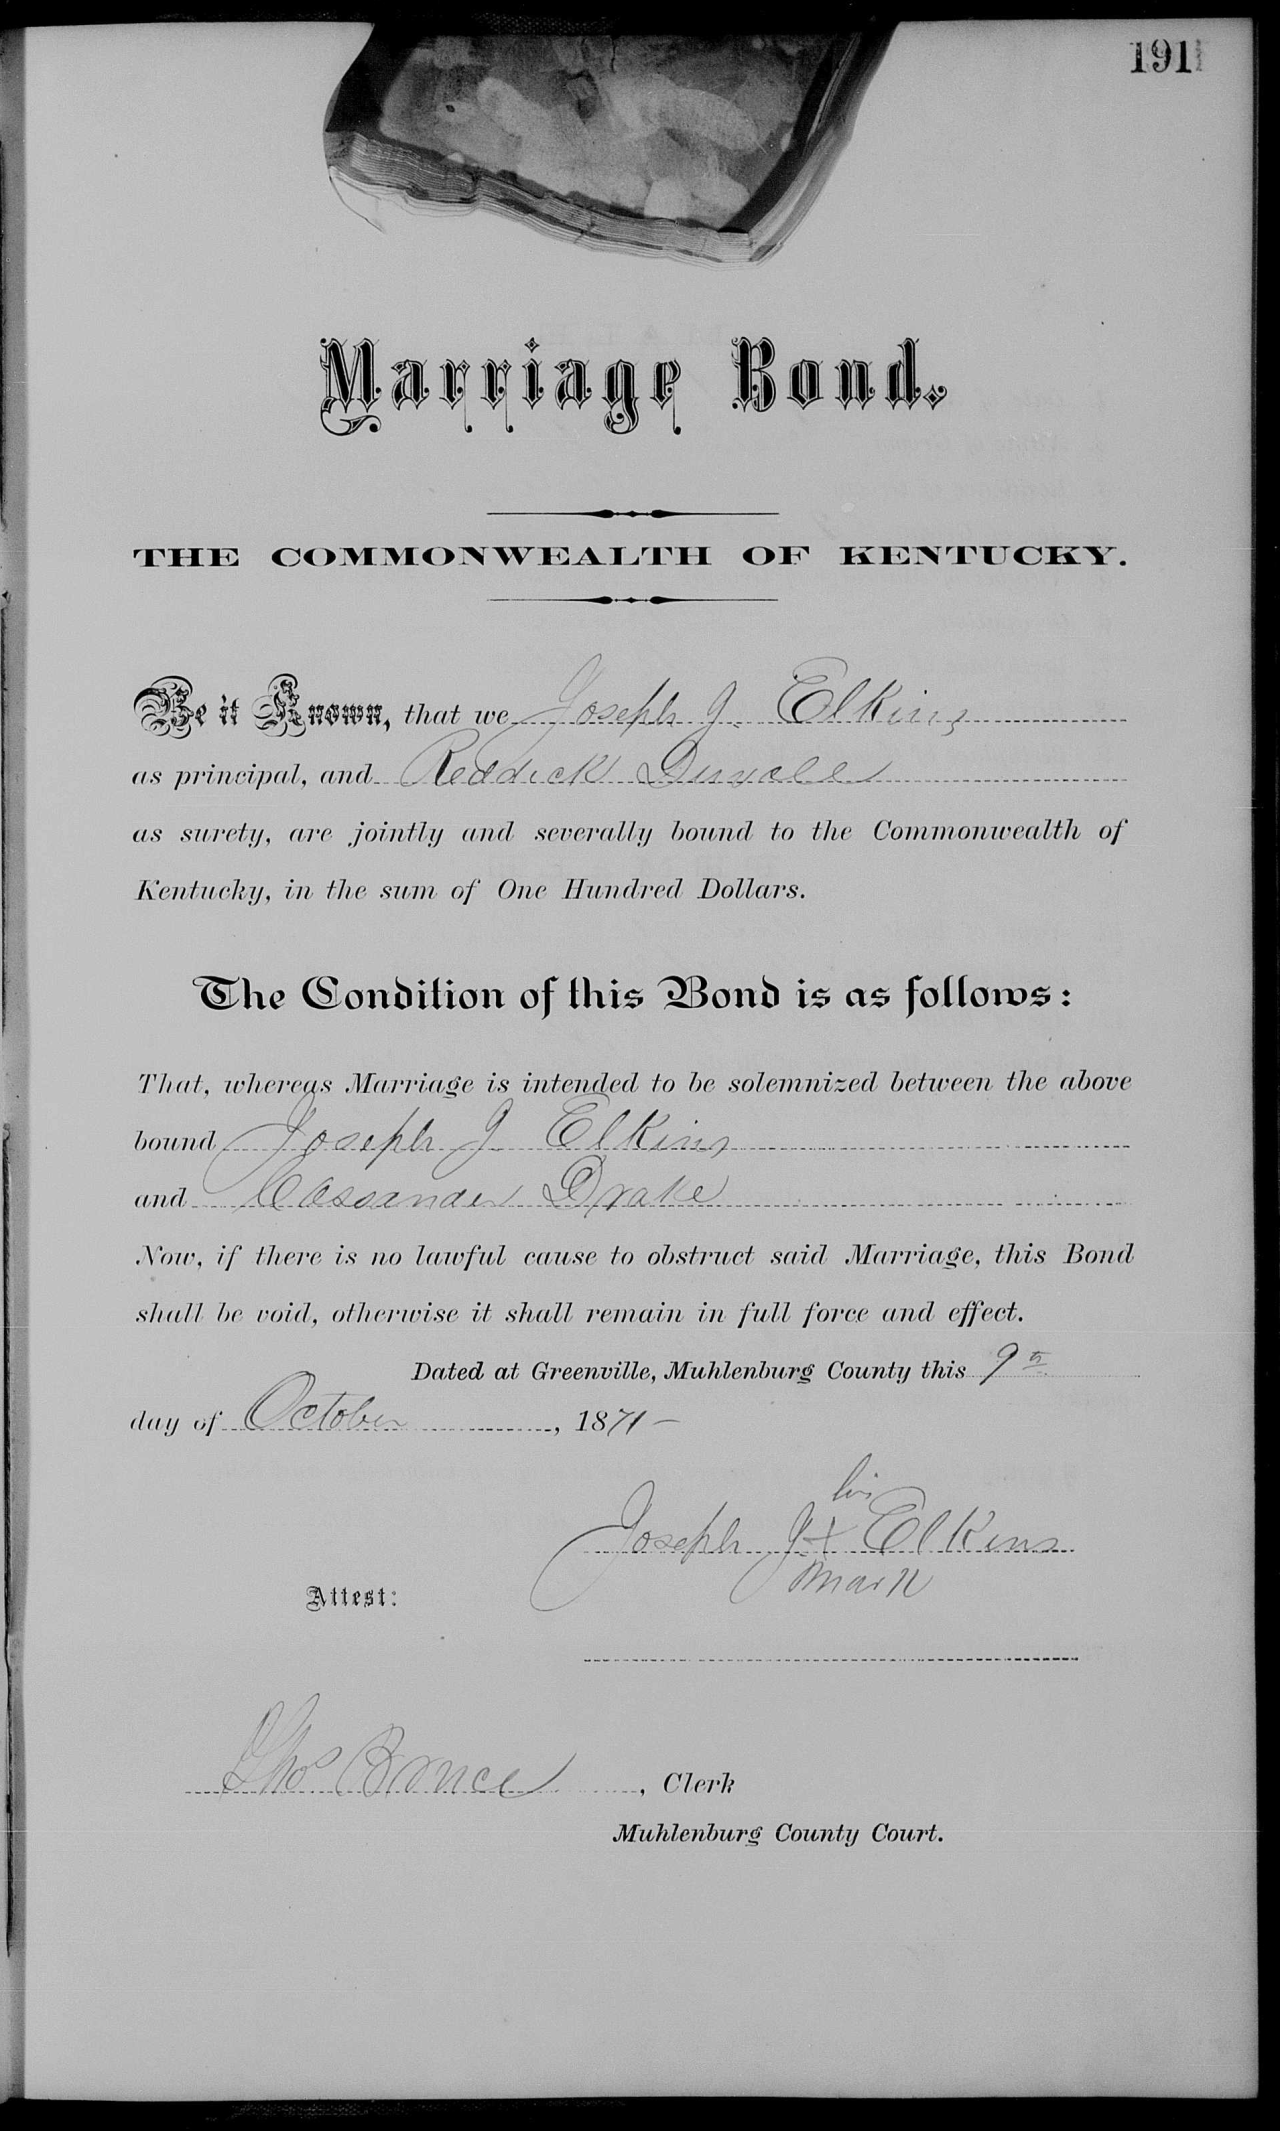 191
Marriage Bond.
THE COMMONWEALTH OF KENTUCKY.
Be it Known, that we Joseph J. Elkins
as principal, and Reddick Duvall
as surety, are jointly and severally bound to the Commonwealth of
Kentucky, in the sum of One Hundred Dollars.
The Condition of this Bond is as follows:
That, whereas Marriage is intended to be solemnized between the above
bound Joseph J Elkins
and Cassander Drake
Now, if there is no lawful cause to obstruct said Marriage, this Bond
shall be void, otherwise it shall remain in full force and effect.
Dated at Greenville, Muhlenburg County this 9th
day of October, 1871-
his
Joseph J x Elkins
mark
Attest:
Thos Bruce, Clerk
Muhlenburg County Court.